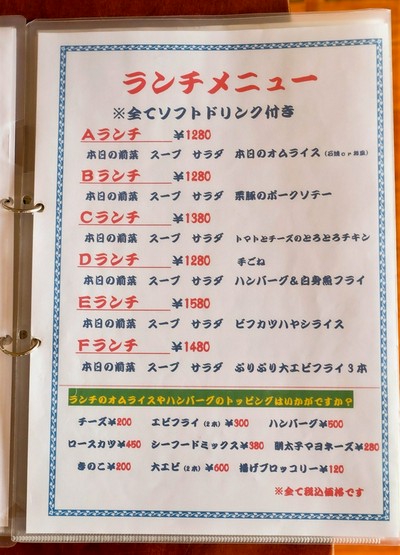 ランチメニュー
※全てソフトドリンク付き
Aランチ ¥1280
本日の前菜 スープ サラダ 本日のオムライス
Bランチ ¥1280
本日の前菜 スープ サラダ 栗豚のポークソテー
Cランチ ¥1380
本日の前菜 スープ サラダ トマトとチーズのとろとろチキン
Dランチ ¥1280 手ごね
本日の前菜 スープ サラダ ハンバーグ&白身魚フライ
Eランチ ¥1580
本日の前菜 スープ サラダ ビフカツハヤシライス
Fランチ ¥1480
本日の前菜 スープ サラダ ぷりぷり大エビフライ3本
ランチのオムライスやハンバーグのトッピングはいかがですか?
チーズ¥200 エビフライ(2本)¥300 ハンバーグ¥500
ロースカツ¥450 シーフードミックス¥380 明太子マヨネーズ¥280
きのこ¥200 大エビ(2本)¥600 揚げブロッコリー¥120
※全て税込価格です